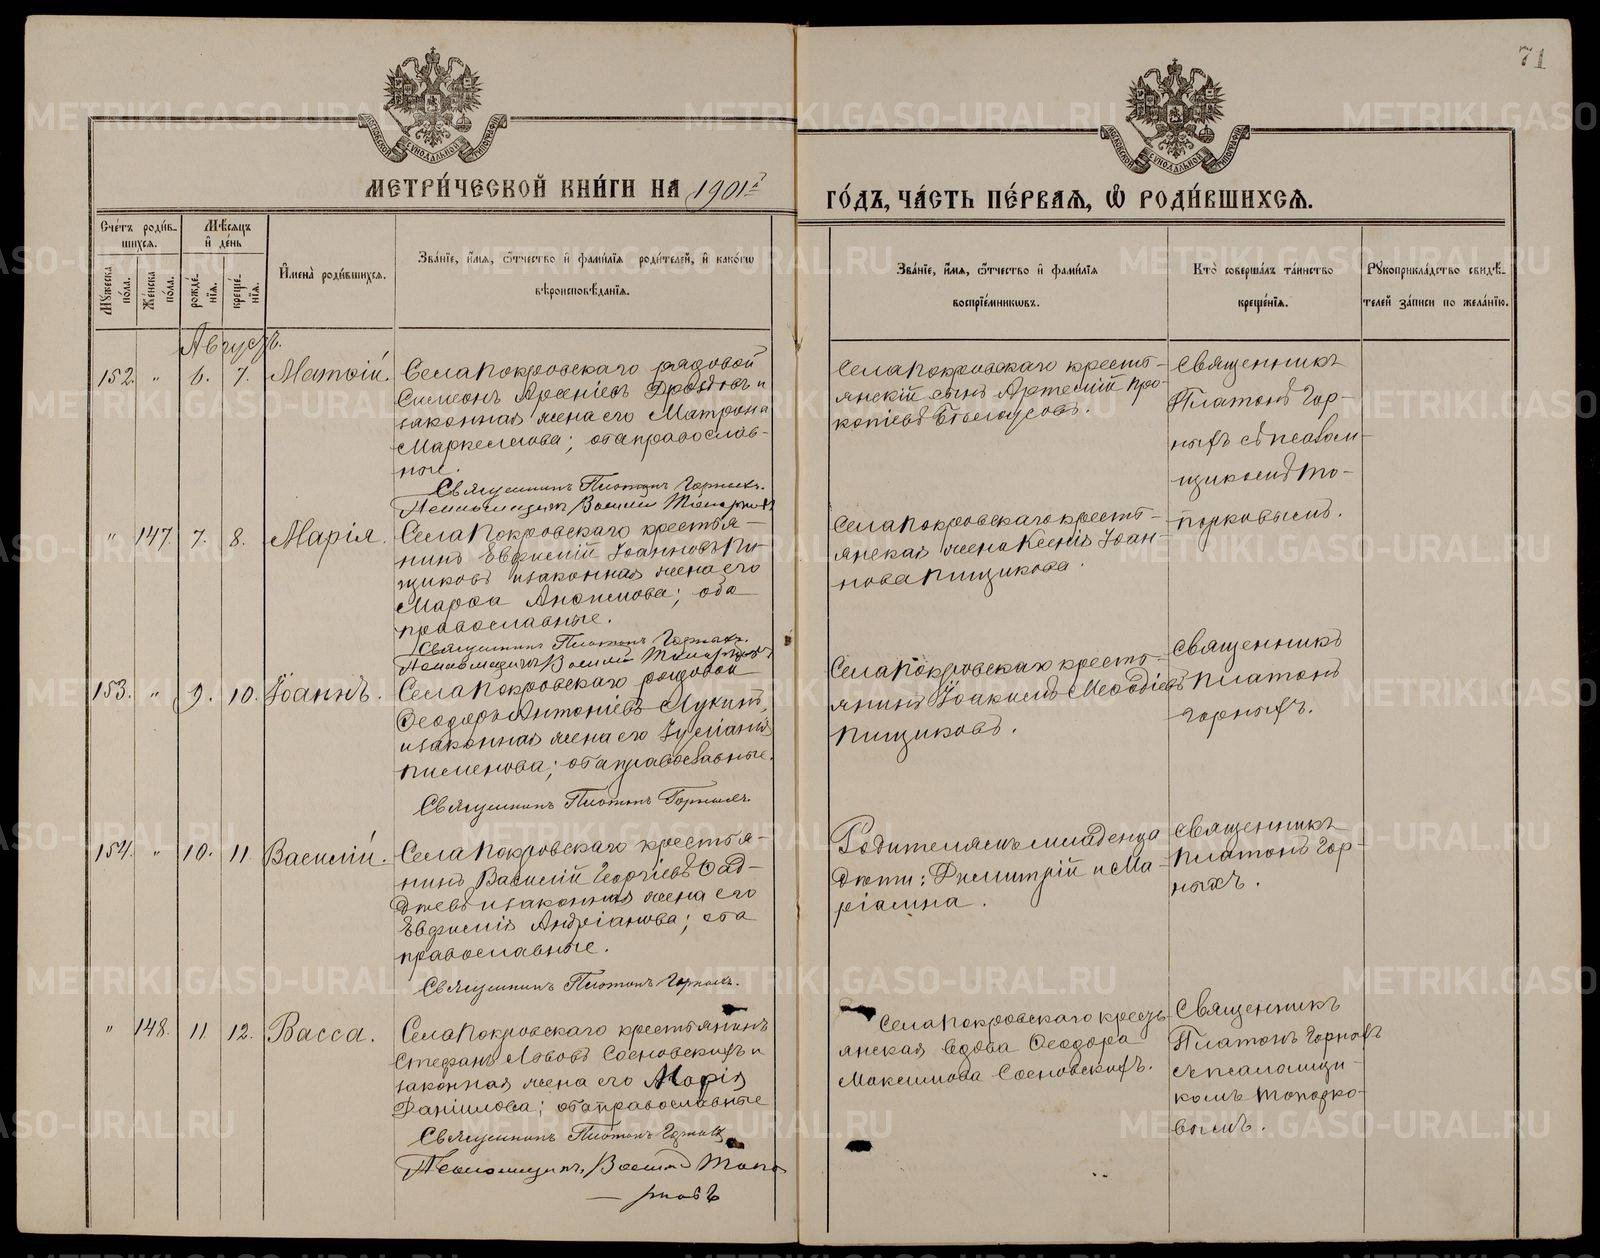 71
МОСКОВСКОЙ СУНОДАЛЬНОЙ ТИПОГРАФІИ
МОСКОВСКОЙ СУНОДАЛЬНОЙ ТИПОГРАФІИ
МЕТРИ́ЧЕСКОЙ КНИ́ГИ НА 1901й
ГО́ДЪ, ЧА́СТЬ ПЕ́РВАѦ, Ѡ҆ РОДИ́ВШИХСѦ.
Сче́тъ роди́в-
шихсѧ.
Му́жеска по́ла.
Же́нска по́ла.
Мѣ́сѧцъ
и҆ де́нь
рожде́нїѧ.
креще́нїѧ.
И҆мена̀ роди́вшихсѧ.
Зва́нїе, и҆́мѧ, ѻ҆́тчество и҆ фами́лїѧ роди́телей, и҆ како́гѡ
вѣроисповѣ́данїѧ.
Зва́нїе, и҆́мѧ, ѻ҆́тчество и҆ фами́лїѧ
воспрїе́мникѡвъ.
Кто̀ соверша́лъ та́инство
креще́нїѧ.
Рꙋкоприкла́дство свидѣ́-
телей за́писи по жела́нїю.
Августъ.
152. " 6. 7. Матѳій.
Села Покровскаго рядовой
Симеонъ Арсеніевъ Дроздовъ и
законная жена его Матрона
Маркеллова; оба православ-
ные.
Священникъ Платонъ Горныхъ.
Псаломщикъ Василій Топорковъ
Села Покровскаго кресть-
янскій сынъ Артемій Про-
копіевъ Бѣлоусовъ.
Священникъ
Платонъ Гор-
ныхъ съ псалом-
щикомъ То-
порковымъ.
" 147. 7. 8. Марія.
Села Покровскаго крестья-
нинъ Евфимій Іоанновъ Пи-
щиковъ и законная жена его
Марѳа Анѳимова; оба
православные.
Священникъ Платонъ Горныхъ.
Псаломщикъ Василій Топорковъ
Села Покровскаго кресть-
янская жена Ксенія Іоан-
нова Пищикова.
153. " 9. 10. Іоаннъ.
Села Покровскаго рядовой
Ѳеодоръ Антоніевъ Лукинъ,
и законная жена его Іуліанія
Пименова; оба православные.
Священникъ Платонъ Горныхъ.
Села Покровскаго кресть-
янинъ Іоакимъ Меѳодіевъ
Пищиковъ.
Священникъ
Платонъ
Горныхъ.
154. " 10. 11. Василій.
Села Покровскаго крестья-
нинъ Василій Георгіевъ Ѳад-
дѣевъ и законная жена его
Евфимія Андріанова; оба
православные.
Священникъ Платонъ Горныхъ.
Родителямъ младенца
дѣти: Димитрій и Ма-
ріамна.
Священникъ
Платонъ Гор-
ныхъ.
" 148. 11. 12. Васса.
Села Покровскаго крестьянинъ
Стефанъ Львовъ Сосновскихъ и
законная жена его Марія
Даніилова; оба православные
Священникъ Платонъ Горныхъ
Псаломщикъ Василій Топо
рковъ
Села Покровскаго кресть-
янская вдова Ѳеодора
Максимова Сосновскихъ.
Священникъ
Платонъ Горныхъ
съ псаломщи-
комъ Топорко-
вымъ.
METRIKI.GASO-URAL.RU